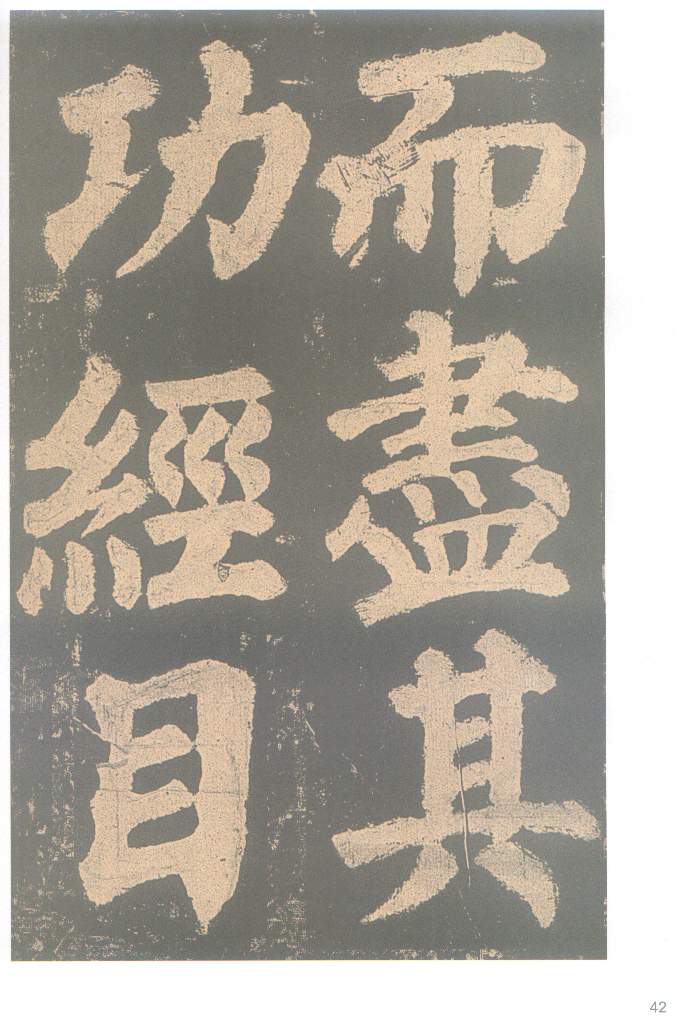 而盡其
功經目
42